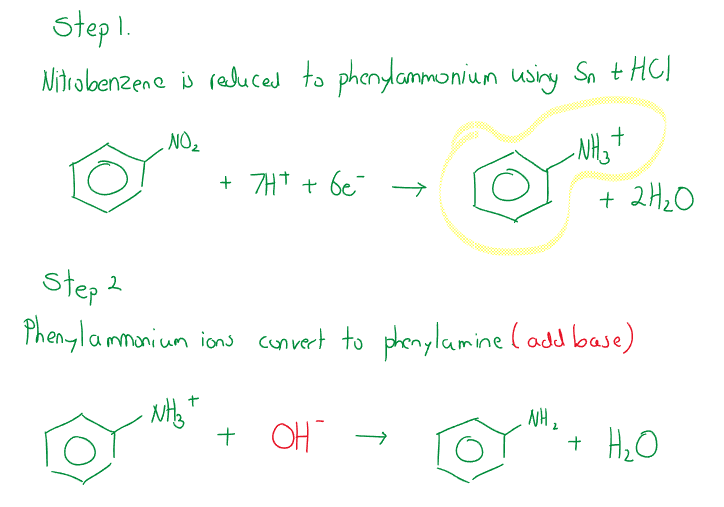 Step 1.
Nitrobenzene is reduced to phenylammonium using Sn + HCl
NO₂ + 7H⁺ + 6e⁻ → NH₃⁺ + 2H₂O
Step 2
Phenylammonium ions convert to phenylamine (add base)
NH₃⁺ + OH⁻ → NH₂ + H₂O